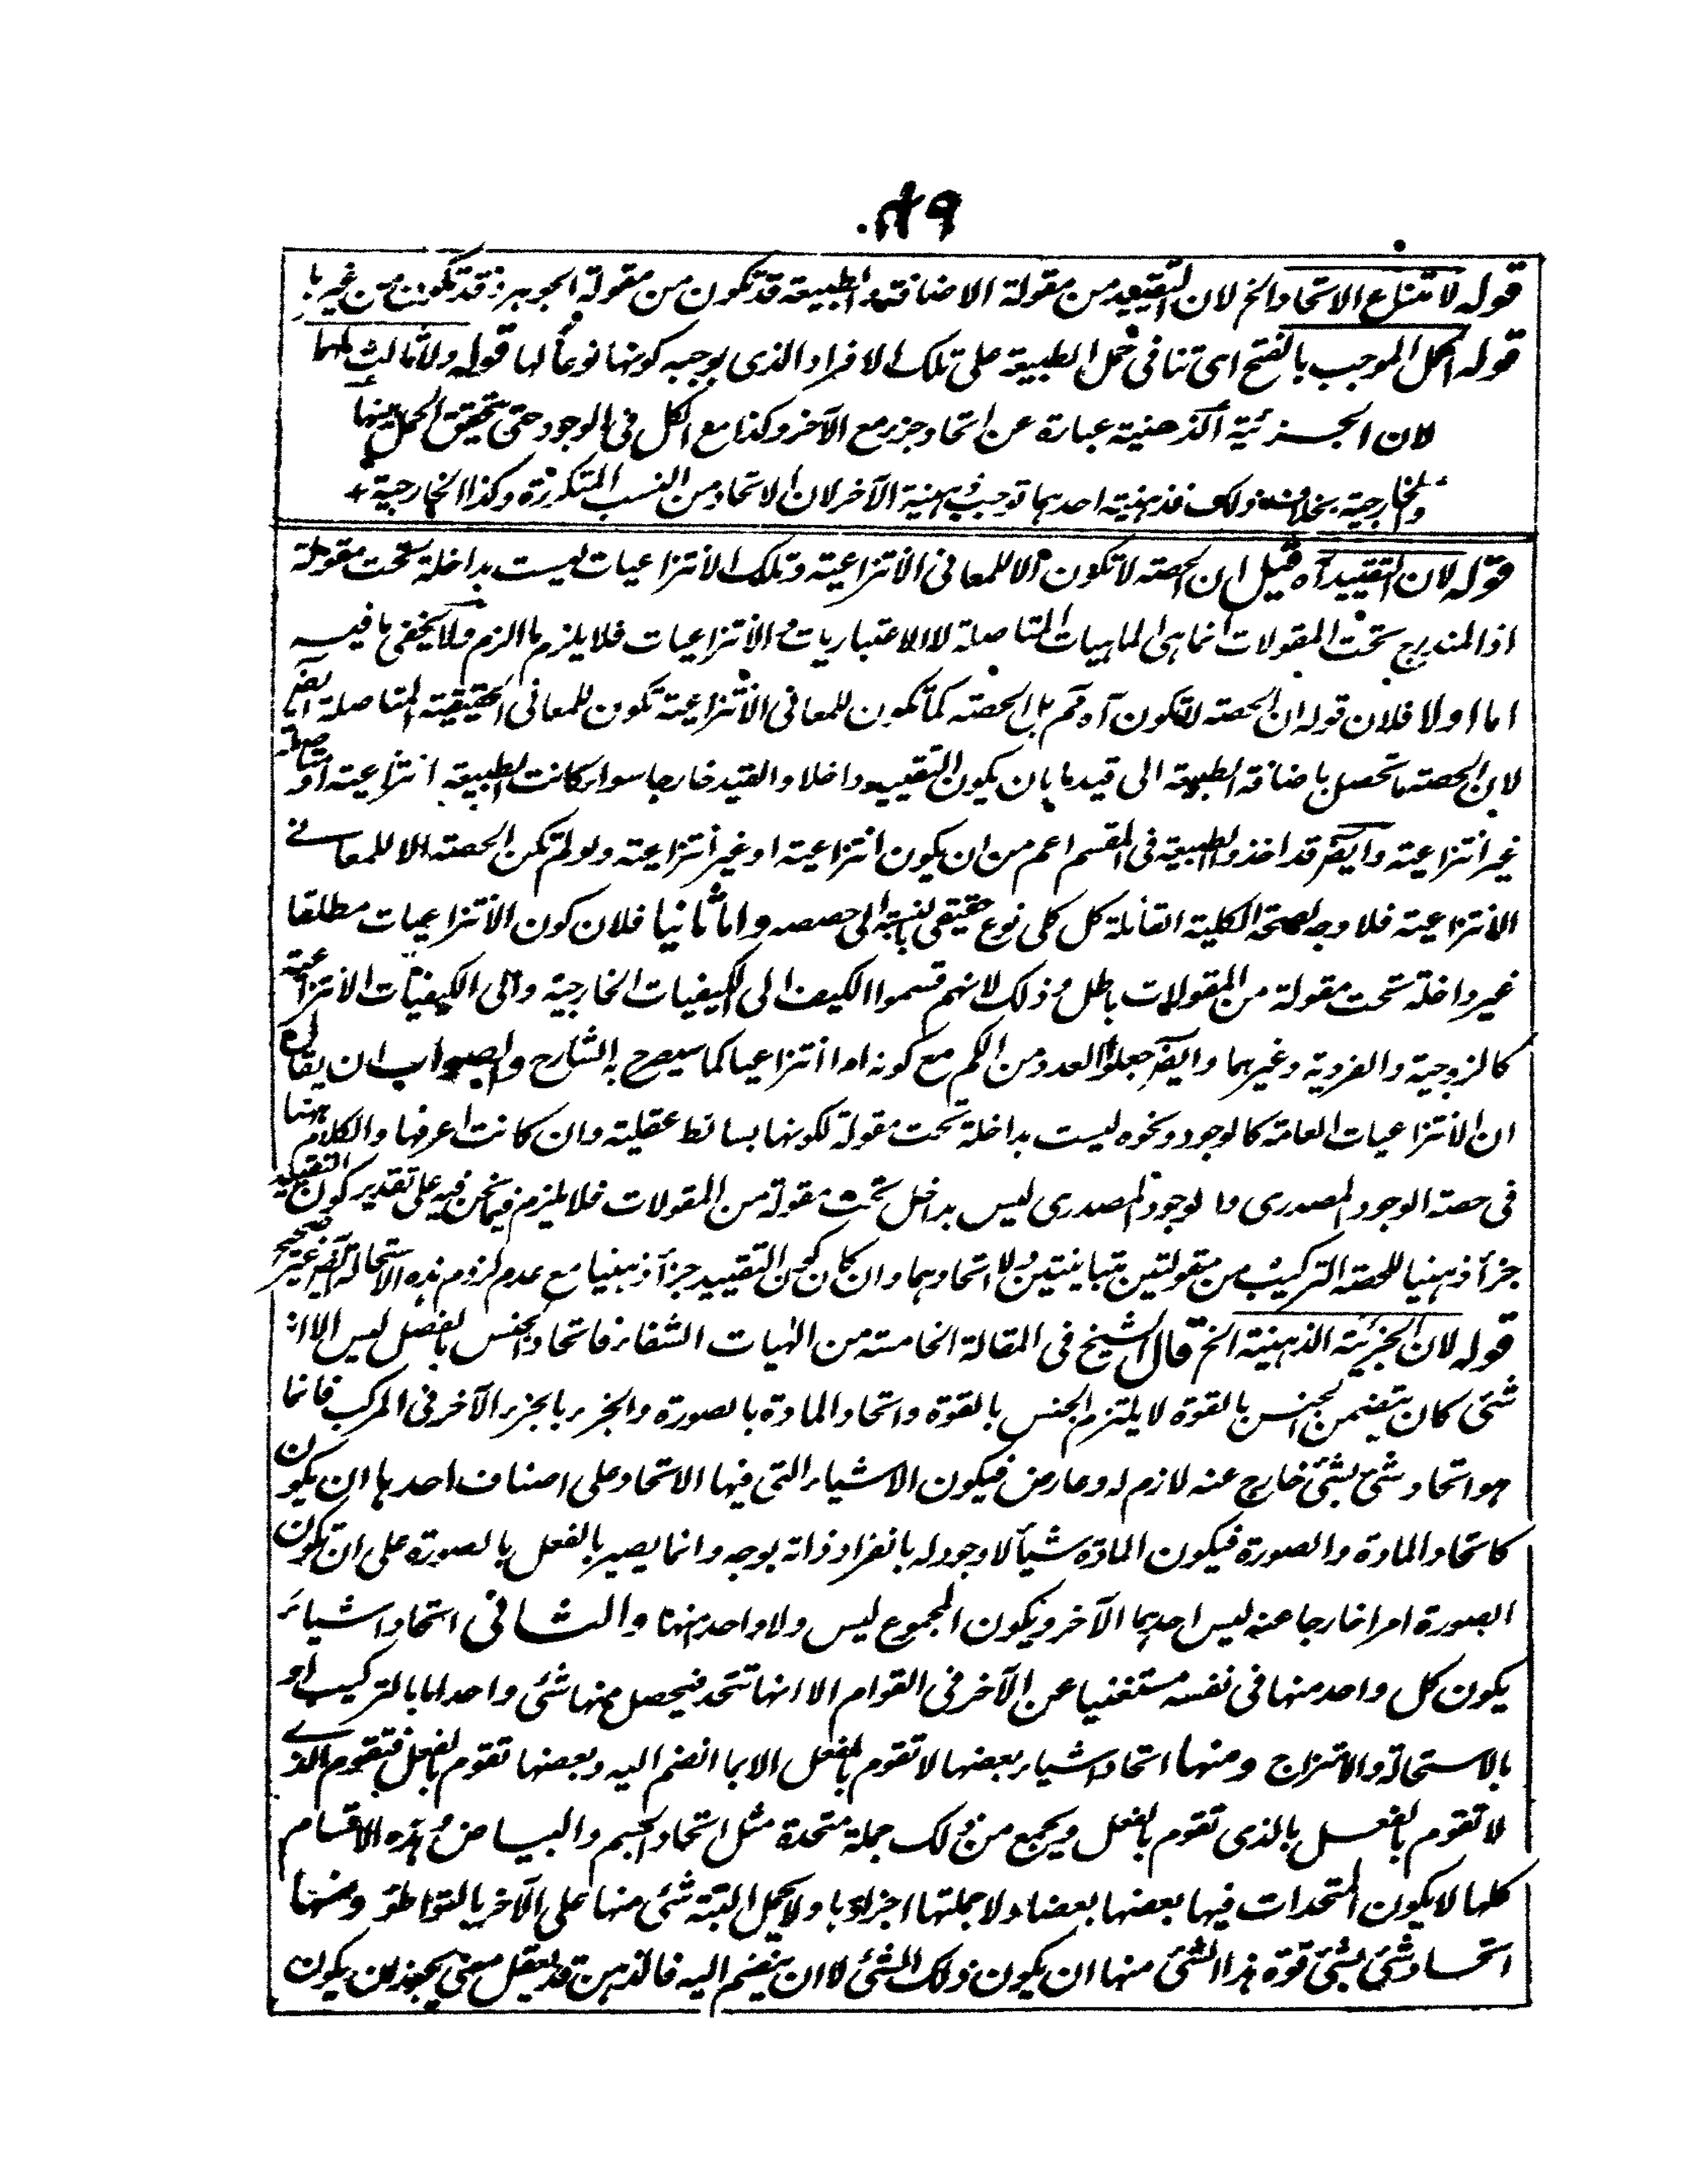 قوله لامتناع الاتحاد الخ لان التقييد من مقولة الاضافة والطبيعة قد تكون من مقولة الجوهر وقد تكون من غيرها
قوله الحمل الموجب بالفتح اى تنافى حمل الطبيعة على تلك الافراد الذى يوجبه كونها نوعاً لها قوله ولا ثالث لهما
لان الجزئية الذهنية عبارة عن اتحاد جزء مع الآخر وكذا مع الكل فى الوجود حتى يتحقق الحمل بينها
والخارجية بخلاف ذلك فذهنية احدهما توجب ذهنية الآخر لان الاتحاد من النسب المتكررة وكذا الخارجية
قوله لان التقييد آه قيل ان الحصة لا تكون الا للمعانى الانتزاعية وتلك الانتزاعيات ليست بداخلة تحت مقولة
اذ المندرج تحت المقولات انما هى الماهيات المتاصلة لا الاعتباريات والانتزاعيات فلا يلزم ما الزم ولا يخفى ما فيه
اما اولا فلان قوله ان الحصة لا تكون آه مم بل الحصة كما تكون للمعانى الانتزاعية تكون للمعانى الحقيقية المتاصلة ايضا
لان الحصة ما تحصل باضافة الطبيعة الى قيد ما بان يكون التقييد داخلا والقيد خارجا سواء كانت الطبيعة انتزاعية او متاصلة
غير انتزاعية وايضا قد اخذوا الطبيعة فى المقسم اعم من ان يكون انتزاعية او غير انتزاعية ولو لم تكن الحصة الا للمعانے
الانتزاعية فلا وجه لصحة الكلية القائلة كل كلى نوع حقيقى بالنسبة الى حصصه واما ثانيا فلان كون الانتزاعيات مطلقا
غير داخلة تحت مقولة من المقولات باطل وذلك لانهم قسموا الكيف الى الكيفيات الخارجية والى الكيفيات الانتزاعية
كالزوجية والفردية وغيرهما وايضا جعلوا العدد من الكم مع كونه امرا انتزاعيا كما سيصرح به الشارح والصواب ان يقال
ان الانتزاعيات العامة كالوجود ونحوه ليست بداخلة تحت مقولة لكونها بسائط عقلية وان كانت اعرفها والكلام ههنا
فى حصة الوجود المصدرى والوجود المصدرى ليس بداخل تحت مقولة من المقولات فلا يلزم فيما نحن فيه على تقدير كون التقييد
جزأ ذهنيا للحصة التركيب من مقولتين متباينتين ولا اتحادهما وان كان كون التقييد جزأ ذهنيا مع عدم لزوم هذه الاستحالة ايضا غير صحيح
قوله لان الجزئية الذهنية الخ قال الشيخ فى المقالة الخامسة من الٰهيات الشفاء فاتحاد الجنس بالفصل ليس الا انه
شئ كان يتضمن الجنس بالقوة لا يلتزم الجنس بالقوة واتحاد المادة بالصورة والجزء بالجزء الآخر فى المركب فانما
هو اتحاد شئ بشئ خارج عنه لازم له وعارض فيكون الاشياء التى فيها الاتحاد على اصناف احدها ان يكون
كاتحاد المادة والصورة فيكون المادة شيأ لا وجود له بانفراد ذاته بوجه وانما يصير بالفعل بالصورة على ان تكون
الصورة امرا خارجا عنه ليس احدهما الآخر ويكون المجموع ليس ولا واحد منهما والثانى اتحاد اشياء
يكون كل واحد منها فى نفسه مستغنيا عن الآخر فى القوام الا انها تتحد فيحصل منها شئ واحد اما بالتركيب او
بالاستحالة والامتزاج ومنها اتحاد اشياء بعضها لا تقوم بالفعل الا بما انضم اليه وبعضها تقوم بالفعل فتقوم الذے
لا تقوم بالفعل بالذى تقوم بالفعل ويجمع من ذلك جملة متحدة مثل اتحاد الجسم والبياض وهذه الاقسام
كلها لا يكون المتحدات فيها بعضها بعضا ولا جملتها اجزاؤها ولا يحمل البتة شئ منها على الآخر بالتواطؤ ومنها
اتحاد شئ بشئ قوة هذا الشئ منها ان يكون ذلك الشئ لا ان ينضم اليه فالذهن قد يعقل معنى يجوز ان يكون